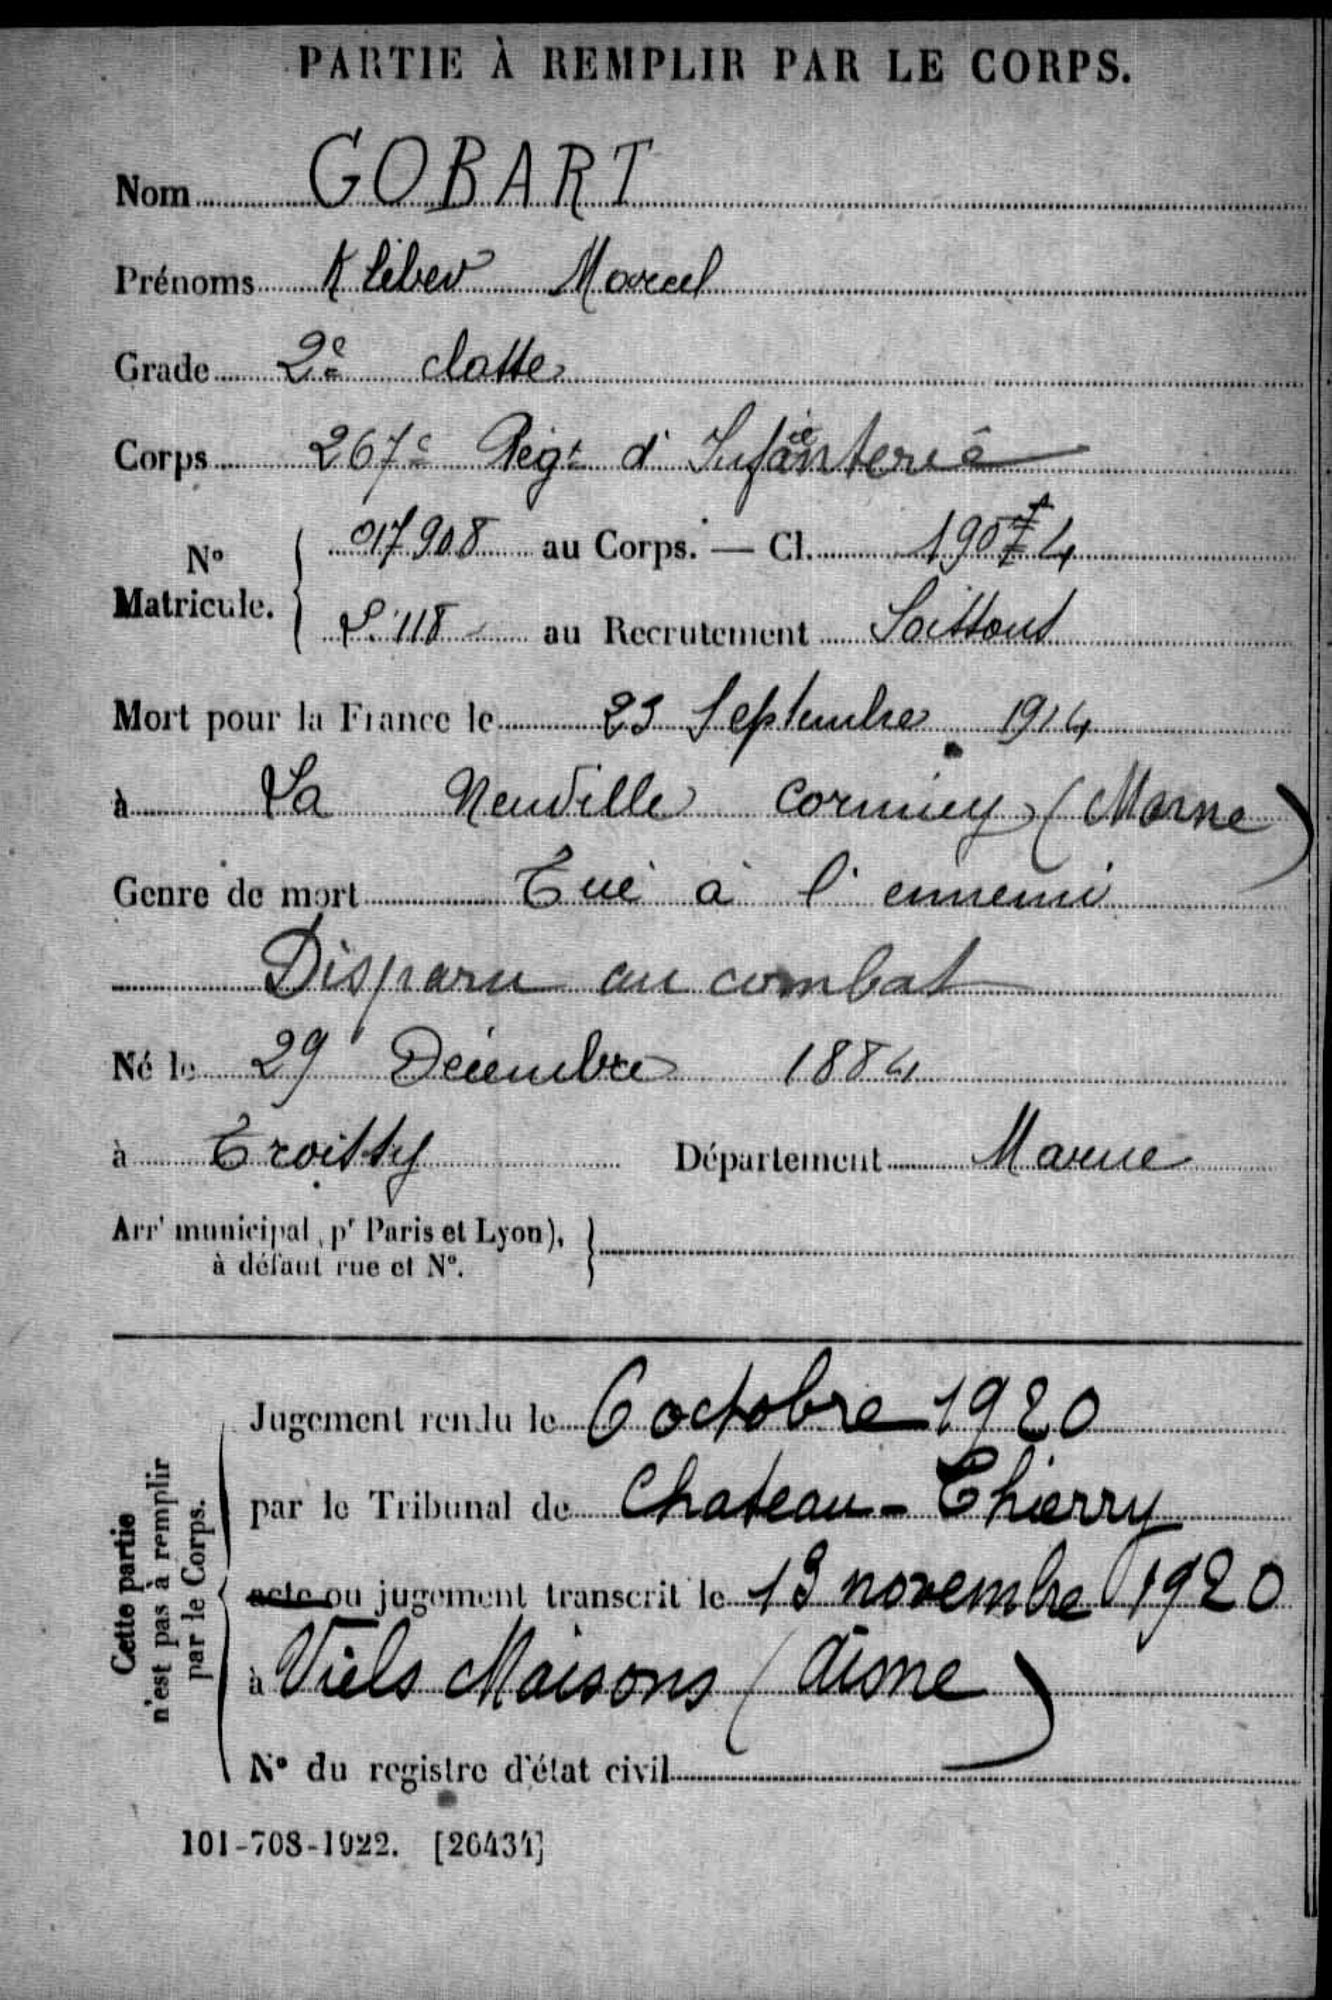 PARTIE À REMPLIR PAR LE CORPS.
Nom GOBART
Prénoms Kléber Marcel
Grade 2e classe
Corps 267e Régt d'Infanterie
No Matricule. 017908 au Corps. — Cl. 1904
118 au Recrutement Soissons
Mort pour la France le 23 Septembre 1914
à La Neuville Cormicy (Marne)
Genre de mort Tué à l'ennemi
Disparu au combat
Né le 29 Décembre 1884
à Troissy Département Marne
Arrt municipal, pr Paris et Lyon),
à défaut rue et No.
Cette partie
n'est pas à remplir
par le Corps.
Jugement rendu le 6 octobre 1920
par le Tribunal de Chateau-Thierry
acte ou jugement transcrit le 13 novembre 1920
à Viels Maisons (Aisne)
No du registre d'état civil
101-708-1922. [26434]